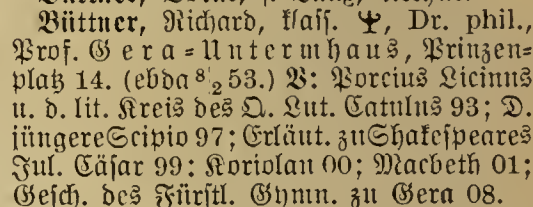 Büttner, Richard, klass. Ψ, Dr. phil.,
Prof. Gera-Untermhaus, Prinzen=
platz 14. (ebda 8/2 53.) V: Porcius Licinus
u. d. lit. Kreis des Q. Lut. Catulus 93; D.
jüngere Scipio 97; Erläut. zu Shakespeares
Jul. Cäsar 99; Koriolan 00; Macbeth 01;
Gesch. des Fürstl. Gymn. zu Gera 08.